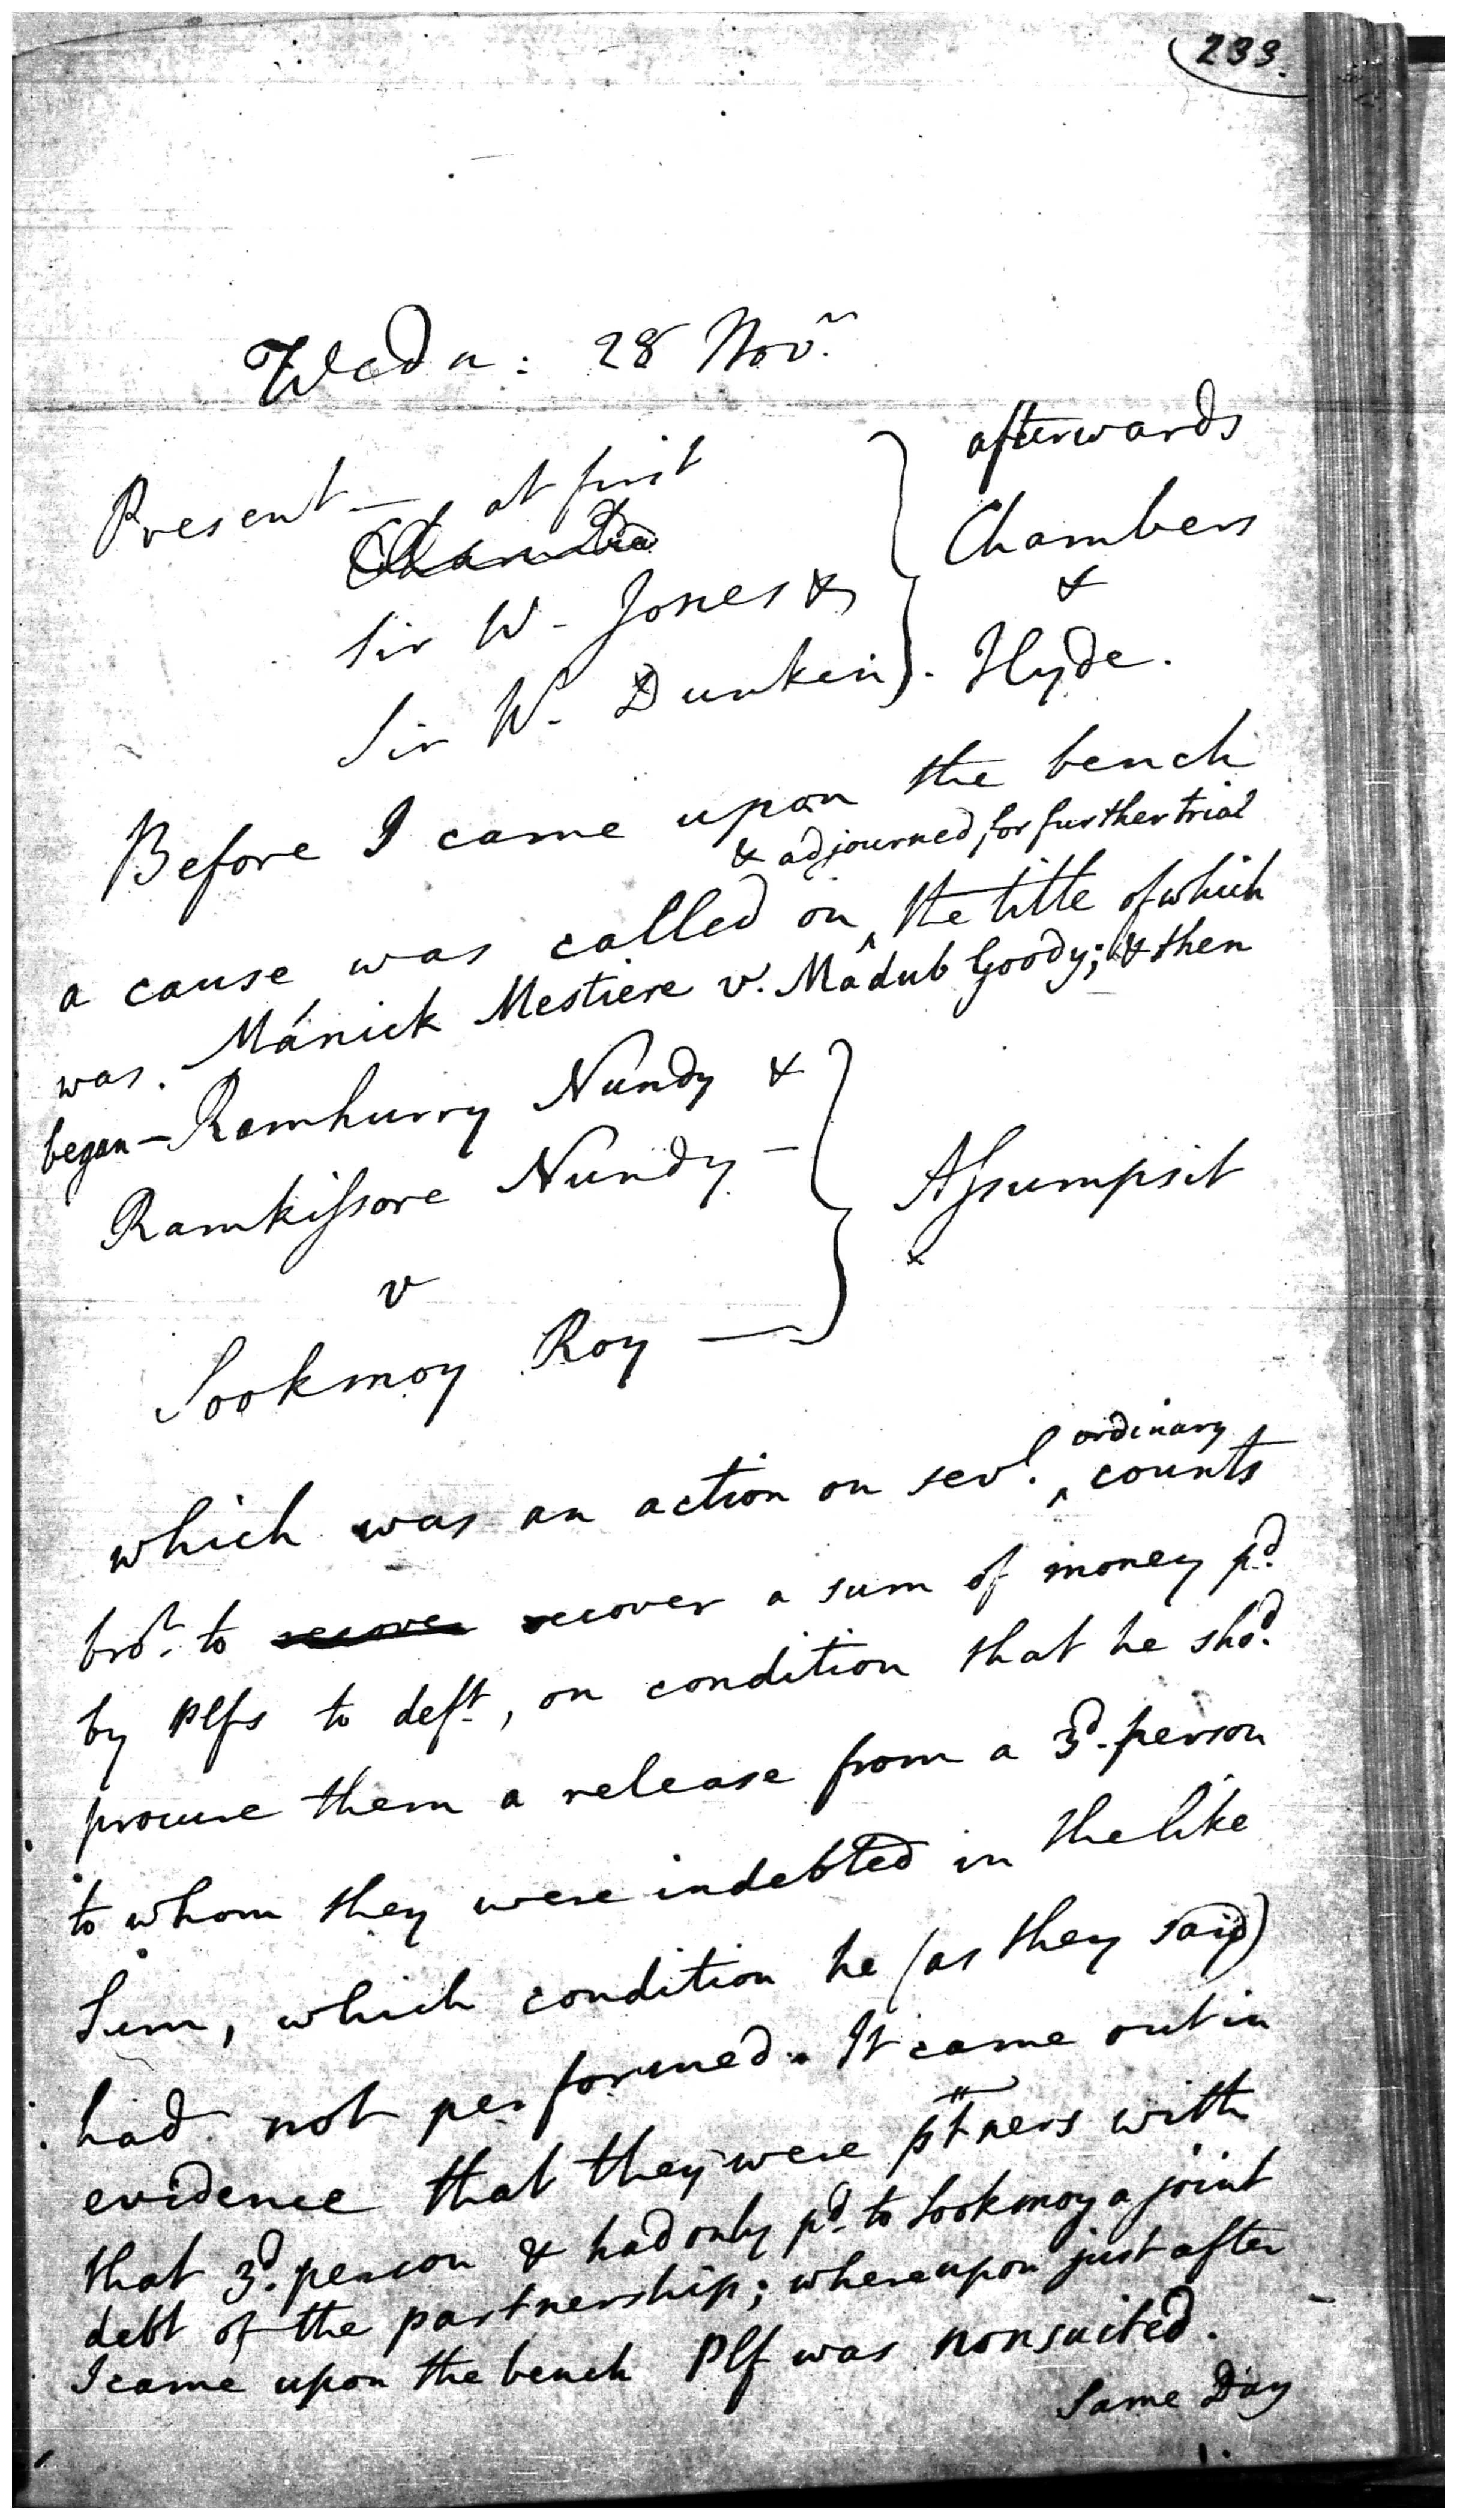 233.
Wedn: 28 Novr.
Present — at first
Sir W. Jones &
Sir W. Dunkin
afterwards
Chambers
&
Hyde.
Before I came upon the bench
& adjourned for further trial
a cause was called on ^ the title of which
was. Mánick Mestiere v. Mádub Goody; & then
began — Ramhurry Nundy &
Ramkissore Nundy —
v
Sookmoy Roy —
Assumpsit
x
ordinary
which was an action on sevl. ^ counts
brot. to recover recover a sum of money pd.
by Plfs to deft., on condition that he shod.
procure them a release from a 3d. person
to whom they were indebted in the like
Sum, which condition he (as they said)
had not performed. It came out in
evidence that they were ptners with
that 3d. person & had only pd. to Sookmoy a joint
debt of the partnership; whereupon just after
I came upon the bench Plf was nonsuited.
Same Day